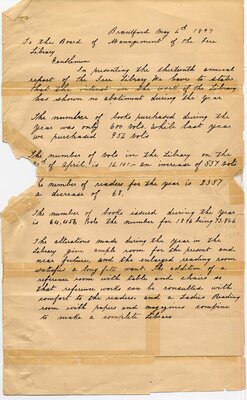 Brantford May 4th 1897
To the Board of Management of the Free
Library
Gentlemen
In presenting the thirteenth annual
report of the Free Library We have to state
that the interest in the work of the Library
has shown no abatement during the year
The number of books purchased during the
year was only 600 Vols, while last year
we purchased 956 Vols
The number of vols in the Library on the
of April is 14,101 - an increase of 537 Vols
The number of readers for the year is 2357
a decrease of 68.
The number of books issued during the year
is 64,458 Vols the number for 1896 being
The alterations made during the year in the
Library give ample room for the present and
near future, and the enlarged reading room
satisfies a long felt want. The addition of a
reference room with table and chairs so
that reference works can be consulted with
comfort to the readers, and a Ladies Reading
room with papers and magazines combine
to make a complete Library